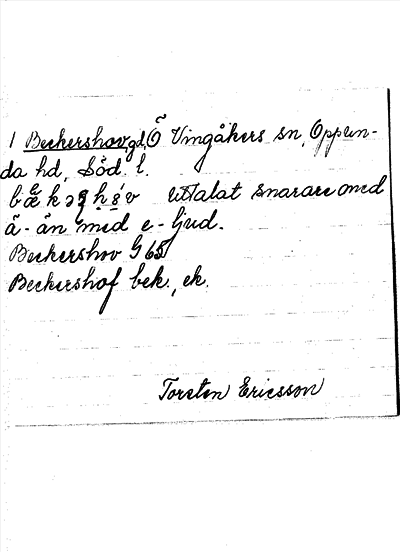 1 Beckershov, gd, Ö Vingåkers sn, Oppun-
da hd, Söd. l.
uttalat snarare med
ä- än med e-ljud.
Beckershov G 65
Beckershof bek., ek.
Torsten Ericsson